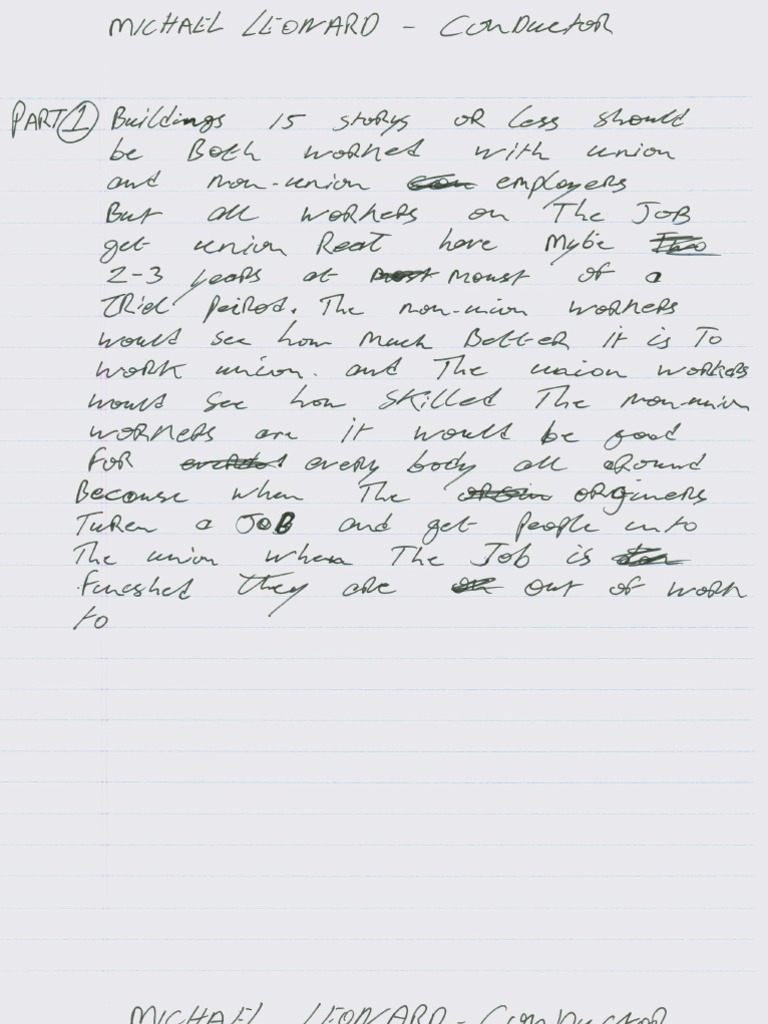 MICHAEL LEONARD - CONDUCTOR
PART 1 Buildings 15 storys or less should
be Both worked with union
and non-union employers
But all workers on The JOB
get union Reat have Mybe
2-3 years at moust of a
Triel peirod. The non-union workers
would see how much Better it is To
work union. and The union workers
would see how skilled The non-union
workers are it would be good
for every body all around
Because when The orginers
Turen a JOB and get people into
The union when The Job is
fineshed they are out of work
to
MICHAEL LEONARD - CONDUCTOR